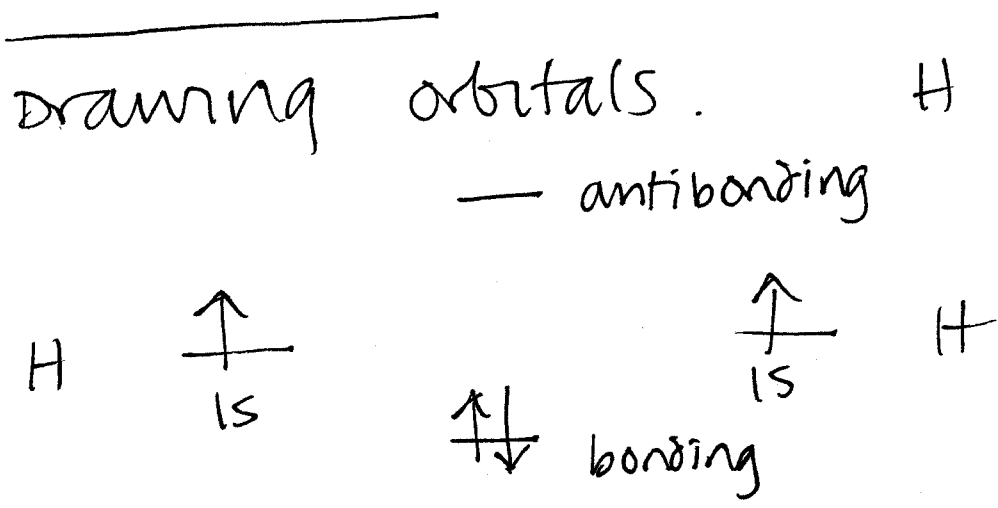 Drawing orbitals. H
antibonding
H 1s 1s H
bonding